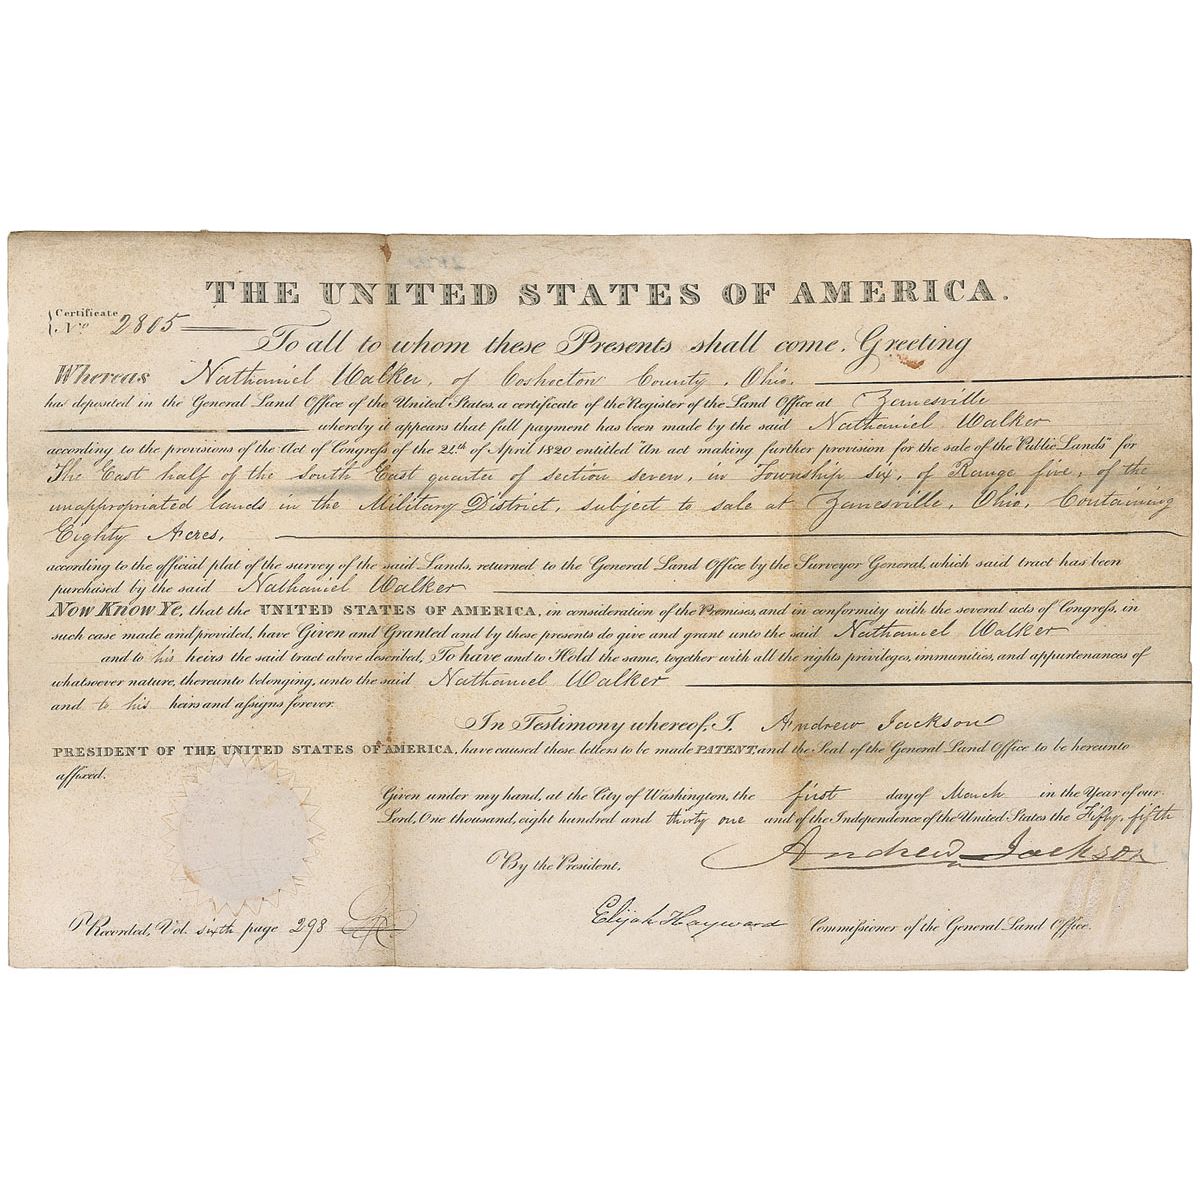 THE UNITED STATES OF AMERICA.
Certificate
No. 2805
To all to whom these Presents shall come, Greeting
Whereas Nathaniel Walker, of Coshocton County, Ohio,
has deposited in the General Land Office of the United States, a certificate of the Register of the Land Office at Zanesville
whereby it appears that full payment has been made by the said Nathaniel Walker
according to the provisions of the Act of Congress of the 24th of April 1820 entitled "An act making further provision for the sale of the Public Lands" for
The East half of the South East quarter of section seven, in Township six, of Range five, of the
unappropriated lands in the Military District, subject to sale at Zanesville, Ohio, Containing
Eighty Acres,
according to the official plat of the survey of the said Lands, returned to the General Land Office by the Surveyor General, which said tract has been
purchased by the said Nathaniel Walker
Now Know Ye, that the UNITED STATES OF AMERICA, in consideration of the Premises, and in conformity with the several acts of Congress, in
such case made and provided, have Given and Granted and by these presents do give and grant unto the said Nathaniel Walker
and to his heirs the said tract above described, To have and to Hold the same, together with all the rights, privileges, immunities, and appurtenances of
whatsoever nature, thereunto belonging, unto the said Nathaniel Walker
and to his heirs and assigns forever.
In Testimony whereof, I, Andrew Jackson
PRESIDENT OF THE UNITED STATES OF AMERICA, have caused these letters to be made PATENT, and the Seal of the General Land Office to be hereunto
affixed.
Given under my hand, at the City of Washington, the first day of March in the Year of our
Lord, One thousand, eight hundred and thirty one and of the Independence of the United States the Fifty, fifth
Andrew Jackson
By the President,
Elijah Hayward Commissioner of the General Land Office.
Recorded, Vol. sixth page 298